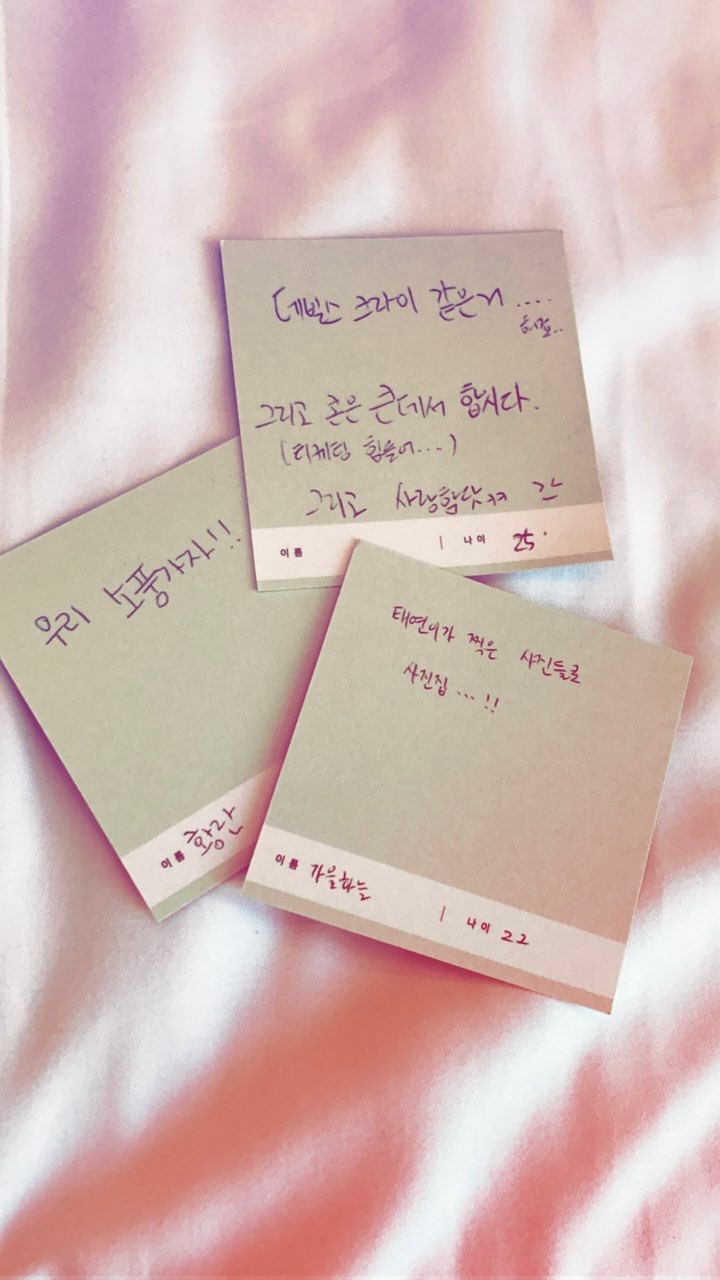 데빌스 크라이 같은거 ....
그리고 콘은 큰데서 합시다.
(티케팅 힘들어...)
그리고 사랑합닷ㅋㅋ
이름 | 나이 25.
우리 소풍가자!!
이름 황란
태연이가 찍은 사진들로
사진집 ... !!
이름 가을하늘 | 나이 22